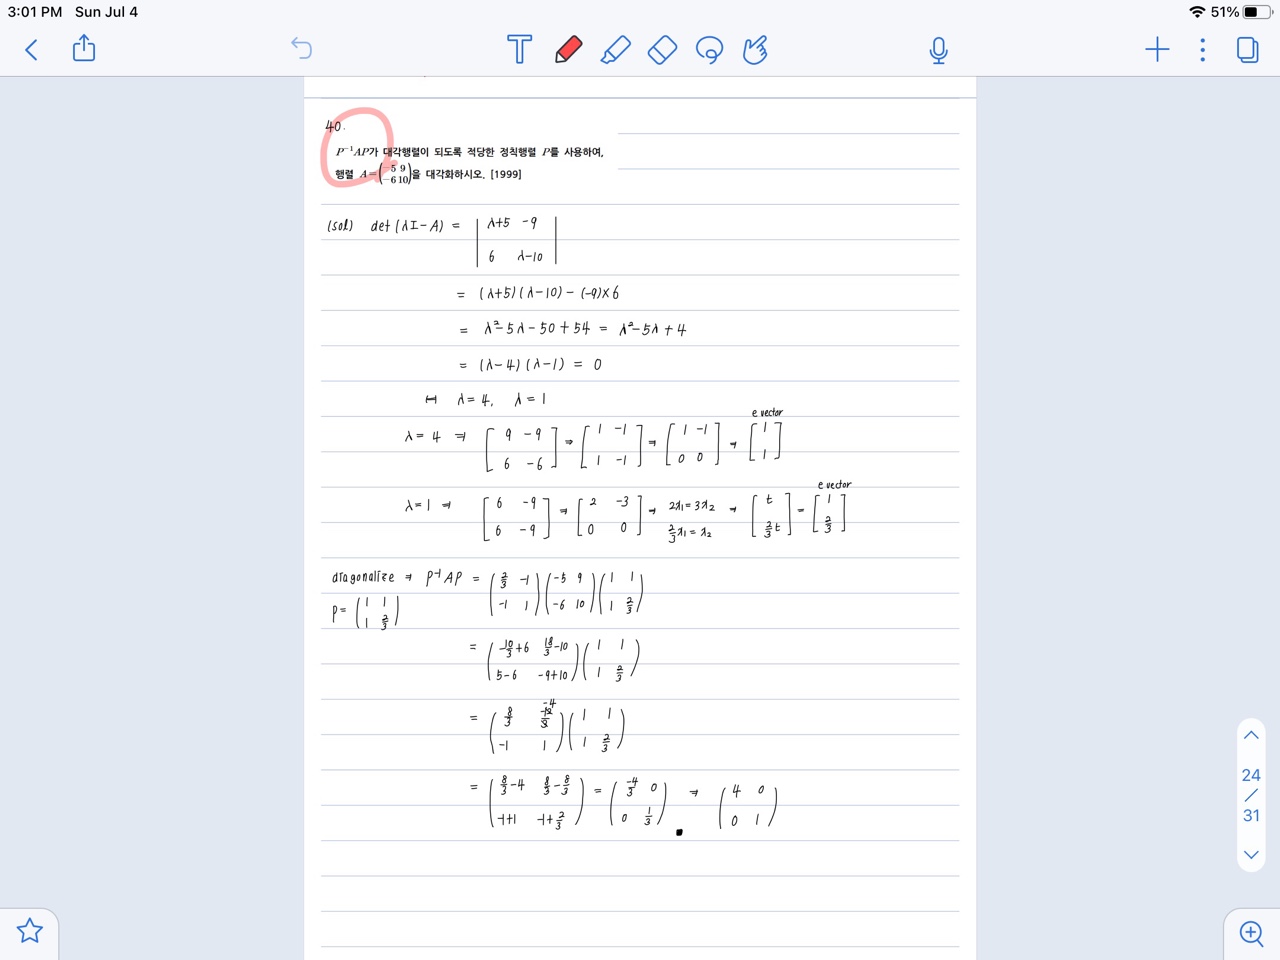 3:01 PM Sun Jul 4
51%
T
40.
P⁻¹AP가 대각행렬이 되도록 적당한 정칙행렬 P를 사용하여,
행렬 A=(−5 9 −6 10)을 대각화하시오. [1999]
(sol) det (λI-A) = | λ+5 -9 |
| 6 λ-10 |
= (λ+5)(λ-10) - (-9)×6
= λ²-5λ-50+54 = λ²-5λ+4
= (λ-4)(λ-1) = 0
↦ λ=4, λ=1
e vector
λ=4 ⇒ [9 -9; 6 -6] ⇒ [1 -1; 1 -1] ⇒ [1 -1; 0 0] ⇒ [1; 1]
e vector
λ=1 ⇒ [6 -9; 6 -9] ⇒ [2 -3; 0 0] ⇒ 2x₁=3x₂ 2/3x₁=x₂ ⇒ [t; 2/3t] = [1; 2/3]
diagonalize ⇒ P⁻¹AP = (2/3 -1; -1 1)(-5 9; -6 10)(1 1; 1 2/3)
P= (1 1; 1 2/3)
= (-10/3+6 18/3-10; 5-6 -9+10)(1 1; 1 2/3)
= (8/3 -4; -1 1)(1 1; 1 2/3)
= (8/3-4 8/3-8/3; -1+1 -1+2/3) = (-4/3 0; 0 1/3) ⇒ (4 0; 0 1)
24
/
31